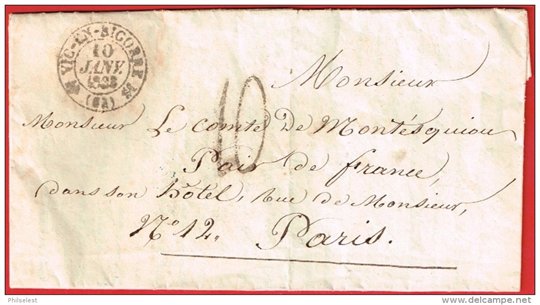 VIC-EN-BIGORRE
10
JANV.
(64)
10
Monsieur
Monsieur Le Comte De Montésquiou
Pair de france,
dans son hôtel, rue de Monsieur,
N° 12. Paris.
Philselest
delcampe.net